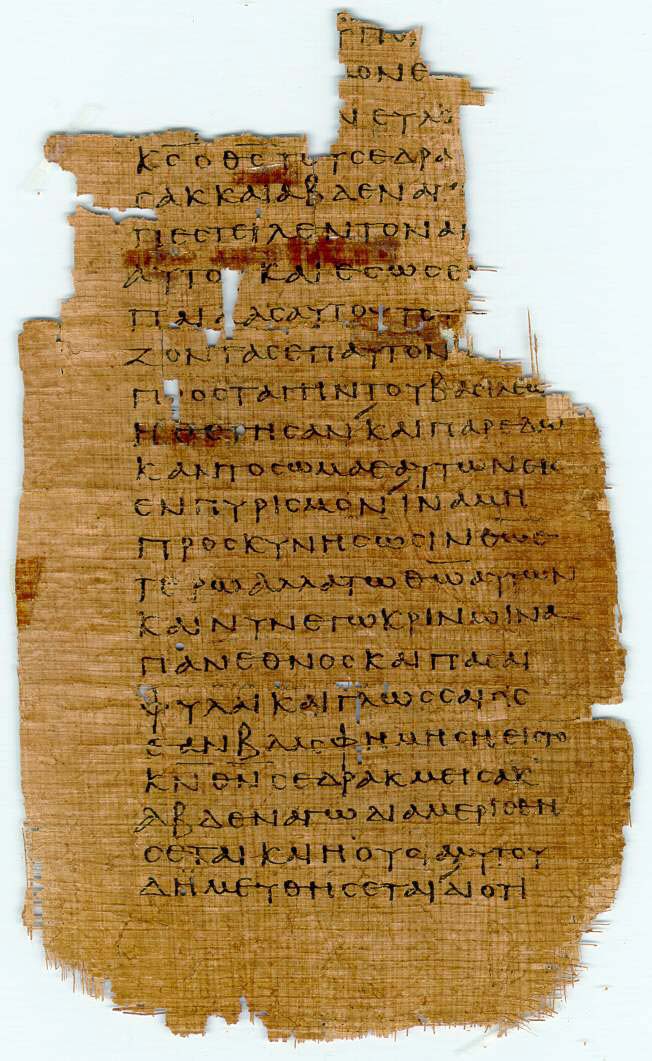 ΟΝΕ
ΚΣ Ο ΘΣ ΤΟΥ ΣΕΔΡΑ
ΣΑΚ ΚΑΙ ΑΒΔΕΝΑΓ
ΠΕΣΤΕΙΛΕΝ ΤΟΝ ΑΓ
ΑΥΤΟΥ ΚΑΙ ΕΣΩΣΕ
ΠΑΙΔΑΣ ΑΥΤΟΥ ΤΟ
ΖΟΝΤΑΣ ΕΠ ΑΥΤΟΝ
ΠΡΟΣΤΑΓΗΝ ΤΟΥ ΒΑΣΙΛΕΩ
ΗΘΕΤΗΣΑΝ ΚΑΙ ΠΑΡΕΔΩ
ΚΑΝ ΤΟ ΣΩΜΑ ΕΑΥΤΩΝ ΕΙΣ
ΕΝΠΥΡΙΣΜΟΝ ΙΝΑ ΜΗ
ΠΡΟΣΚΥΝΗΣΩΣΙΝ ΘΩ Ε
ΤΕΡΩ ΑΛΛΑ ΤΩ ΘΩ ΑΥΤΩΝ
ΚΑΙ ΝΥΝ ΕΓΩ ΚΡΙΝΩ ΙΝΑ
ΠΑΝ ΕΘΝΟΣ ΚΑΙ ΠΑΣΑΙ
ΦΥΛΑΙ ΚΑΙ ΓΛΩΣΣΑΙ ΟΣ
ΕΑΝ ΒΛΑΣΦΗΜΗΣΗ ΕΙΣ ΤΟ
ΚΝ ΘΝ ΣΕΔΡΑΚ ΜΕΙΣΑΚ
ΑΒΔΕΝΑΓΩ ΔΙΑΜΕΡΙΣΘΗ
ΣΕΤΑΙ ΚΑΙ Η ΟΥΣΙΑ ΑΥΤΟΥ
ΔΗΜΕΥΘΗΣΕΤΑΙ ΔΙΟΤΙ